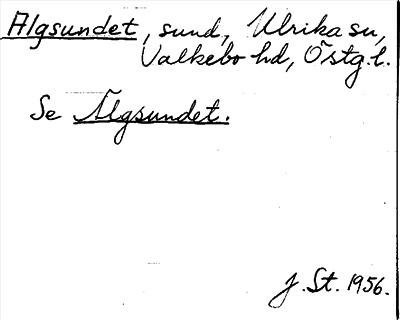 Algsundet, sund, Ulrika sn,
Valkebo hd, Östg.l.
Se Älgsundet.
J. St. 1956.